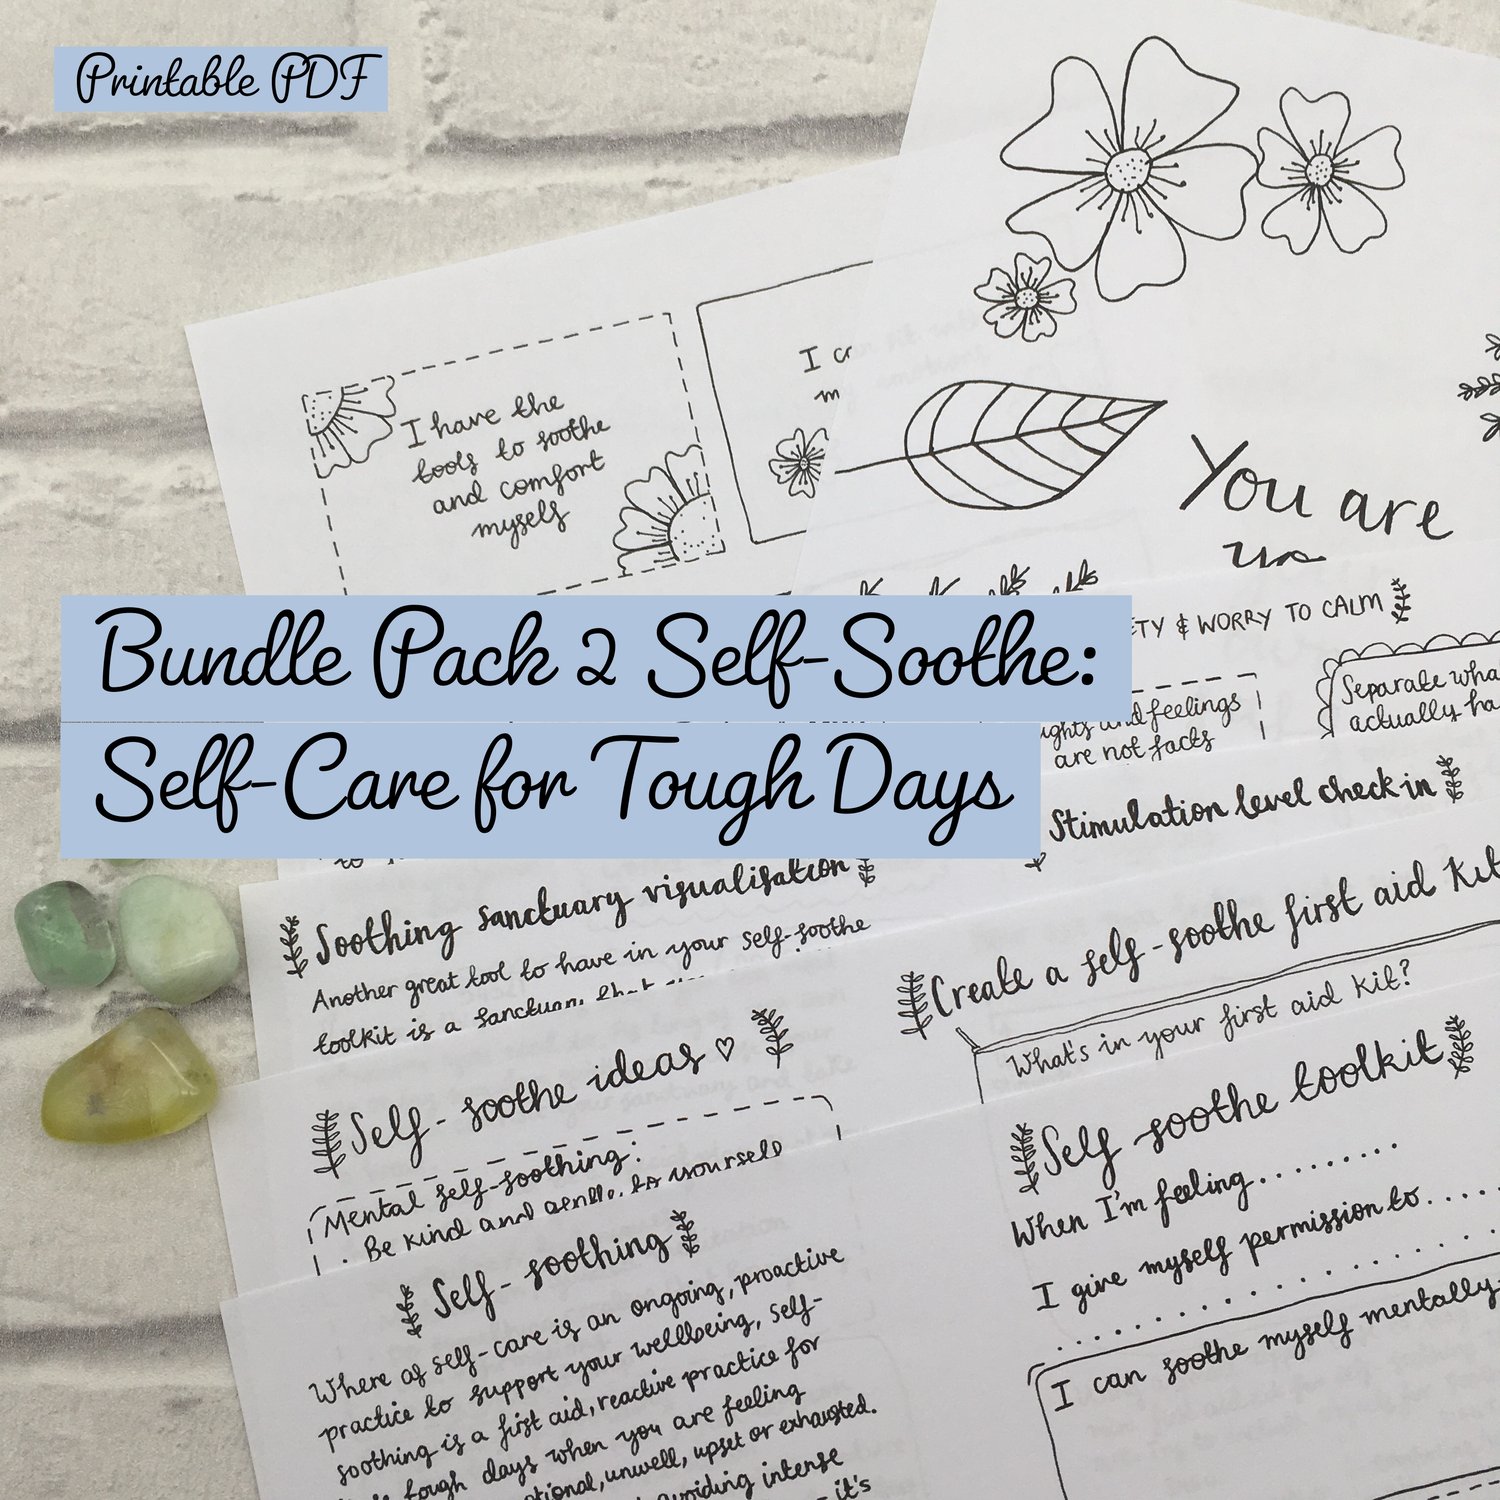 Printable PDF
I have the
tools to soothe
and comfort
myself
I
You are
Bundle Pack 2 Self-Soothe:
Self-Care for Tough Days
& WORRY TO CALM
and feelings
are not facts
Separate
actually
Stimulation level check in
to
Soothing sanctuary visualisation
Another great tool to have in your self-soothe
toolkit is a sanctuary that
Create a self-soothe first aid kit
What's in your first aid kit?
Self-soothe ideas ♡
Mental self-soothing:
. Be kind and gentle to yourself
Self soothe toolkit
When I'm feeling.........
I give myself permission to.....
I can soothe myself mentally
Self-soothing
Where as self-care is an ongoing, proactive
practice to support your wellbeing, self-
soothing is a first aid, reactive practice for
tough days when you are feeling
unwell, upset or exhausted.
avoiding intense
it's